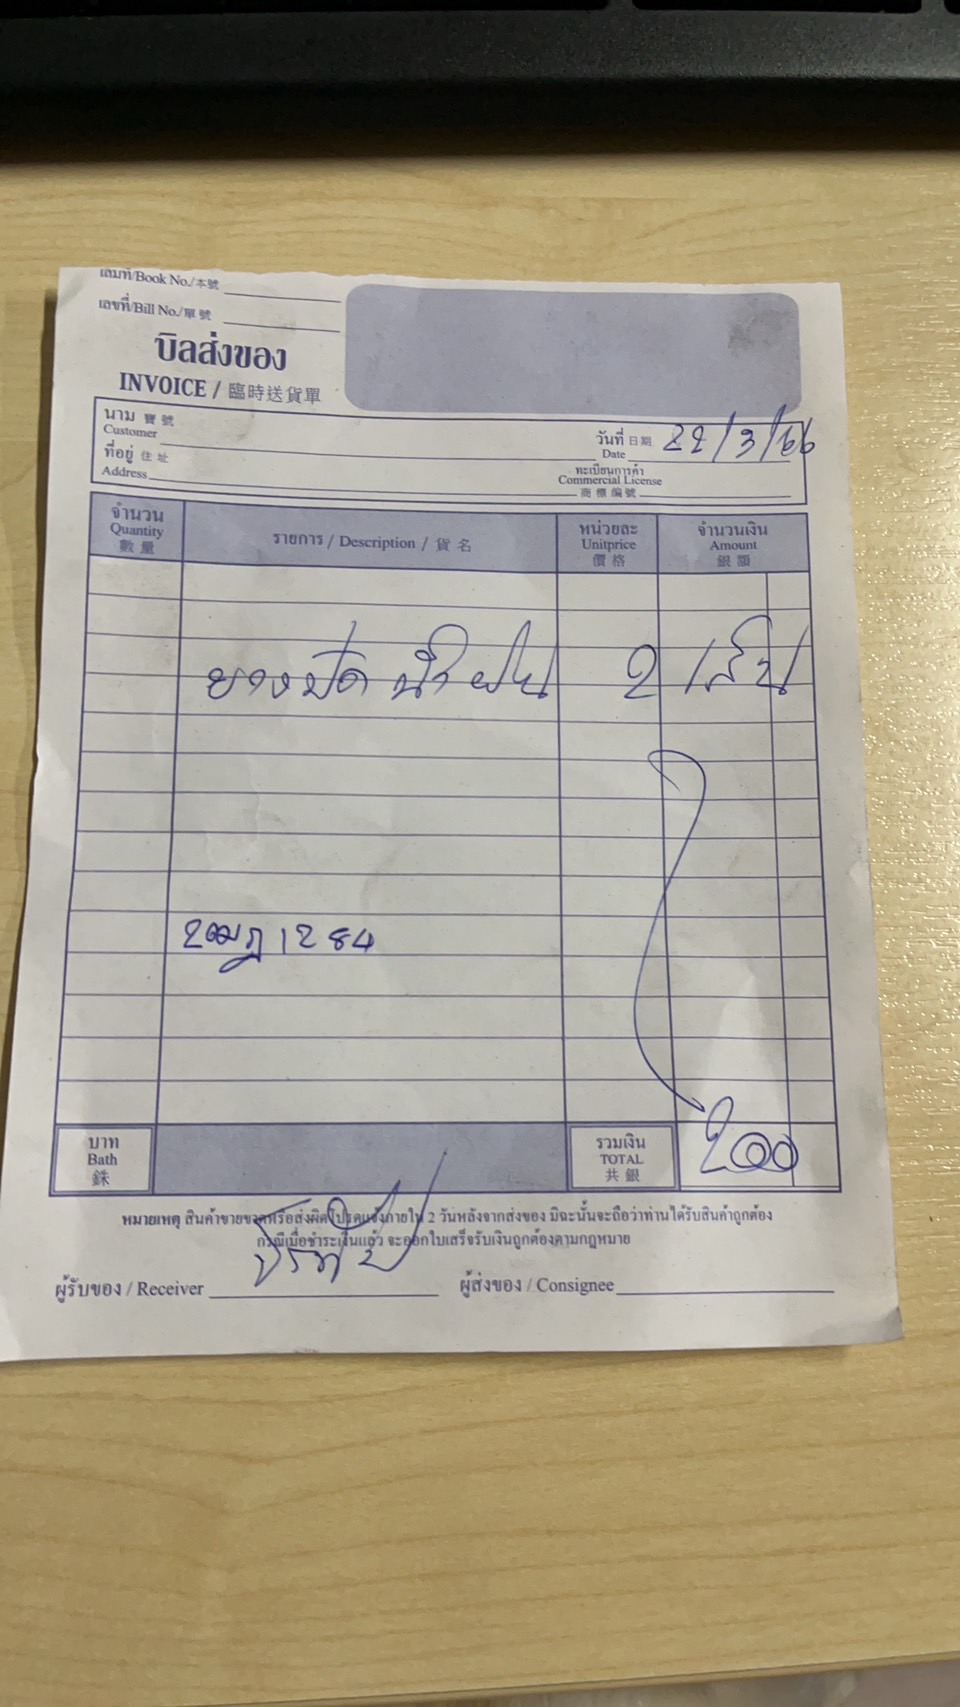 เล่มที่/Book No./本號
เลขที่/Bill No./單號
บิลส่งของ
INVOICE / 臨時送貨單
นาม 寶號
Customer
วันที่ 日期 22/3/66
Date
ที่อยู่ 住址
Address
ทะเบียนการค้า
Commercial License
商標編號
จำนวน รายการ / Description / 貨名 หน่วยละ จำนวนเงิน
Quantity Unitprice Amount
數量 價格 銀額
ยางปัดน้ำฝน 2 เส้น
2ฒฎ 1284
บาท รวมเงิน
Bath TOTAL 200
銖 共銀
หมายเหตุ สินค้าขายขาดหรือส่งผิดโปรดแจ้งภายใน 2 วันหลังจากส่งของ มิฉะนั้นจะถือว่าท่านได้รับสินค้าถูกต้อง
กรณีเมื่อชำระเงินแล้ว จะออกใบเสร็จรับเงินถูกต้องตามกฎหมาย
ผู้รับของ / Receiver ผู้ส่งของ / Consignee